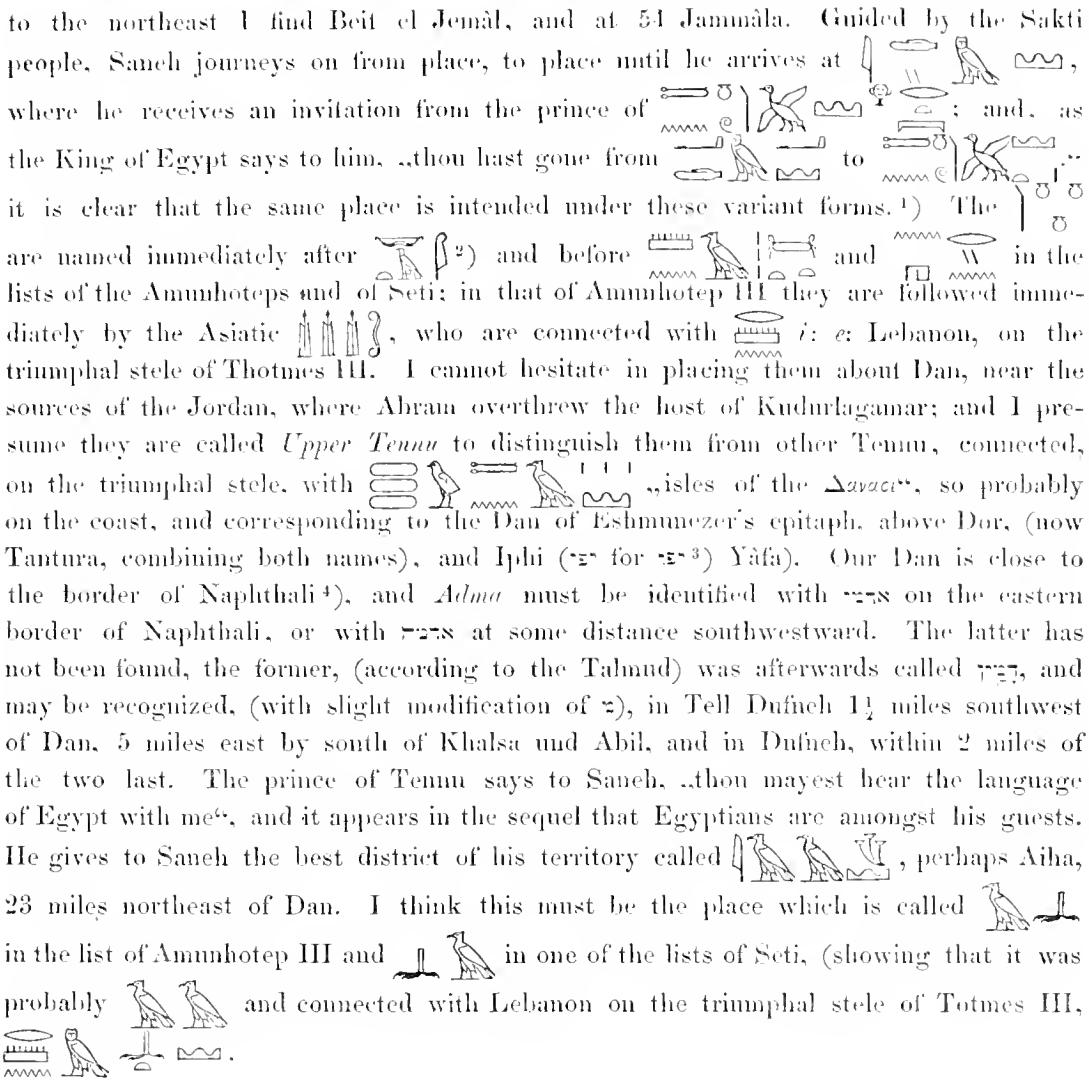 to the northeast 1 find Beit el Jemâl, and at 5½ Jammâla. Guided by the Sakti
people, Saneh journeys on from place, to place until he arrives at ,
where he receives an invitation from the prince of ; and, as
the King of Egypt says to him, „thou hast gone from to “
it is clear that the same place is intended under these variant forms.¹) The
are named immediately after ²) and before and in the
lists of the Amunhoteps and of Seti; in that of Amunhotep III they are followed imme-
diately by the Asiatic , who are connected with i: e: Lebanon, on the
triumphal stele of Thotmes III. I cannot hesitate in placing them about Dan, near the
sources of the Jordan, where Abram overthrew the host of Kudurlagamar; and I pre-
sume they are called Upper Tennu to distinguish them from other Tennu, connected,
on the triumphal stele, with „isles of the Δαναοί“, so probably
on the coast, and corresponding to the Dan of Eshmunezer's epitaph, above Dor, (now
Tantura, combining both names), and Iphi ( for ³) Yâfa). Our Dan is close to
the border of Naphthali⁴), and Adma must be identified with on the eastern
border of Naphthali, or with at some distance southwestward. The latter has
not been found, the former, (according to the Talmud) was afterwards called , and
may be recognized, (with slight modification of ), in Tell Dufneh 1½ miles southwest
of Dan, 5 miles east by south of Khalsa und Abil, and in Dufneh, within 2 miles of
the two last. The prince of Tennu says to Saneh, „thou mayest hear the language
of Egypt with me“, and it appears in the sequel that Egyptians are amongst his guests.
He gives to Saneh the best district of his territory called , perhaps Aiha,
23 miles northeast of Dan. I think this must be the place which is called
in the list of Amunhotep III and in one of the lists of Seti, (showing that it was
probably and connected with Lebanon on the triumphal stele of Totmes III,
.